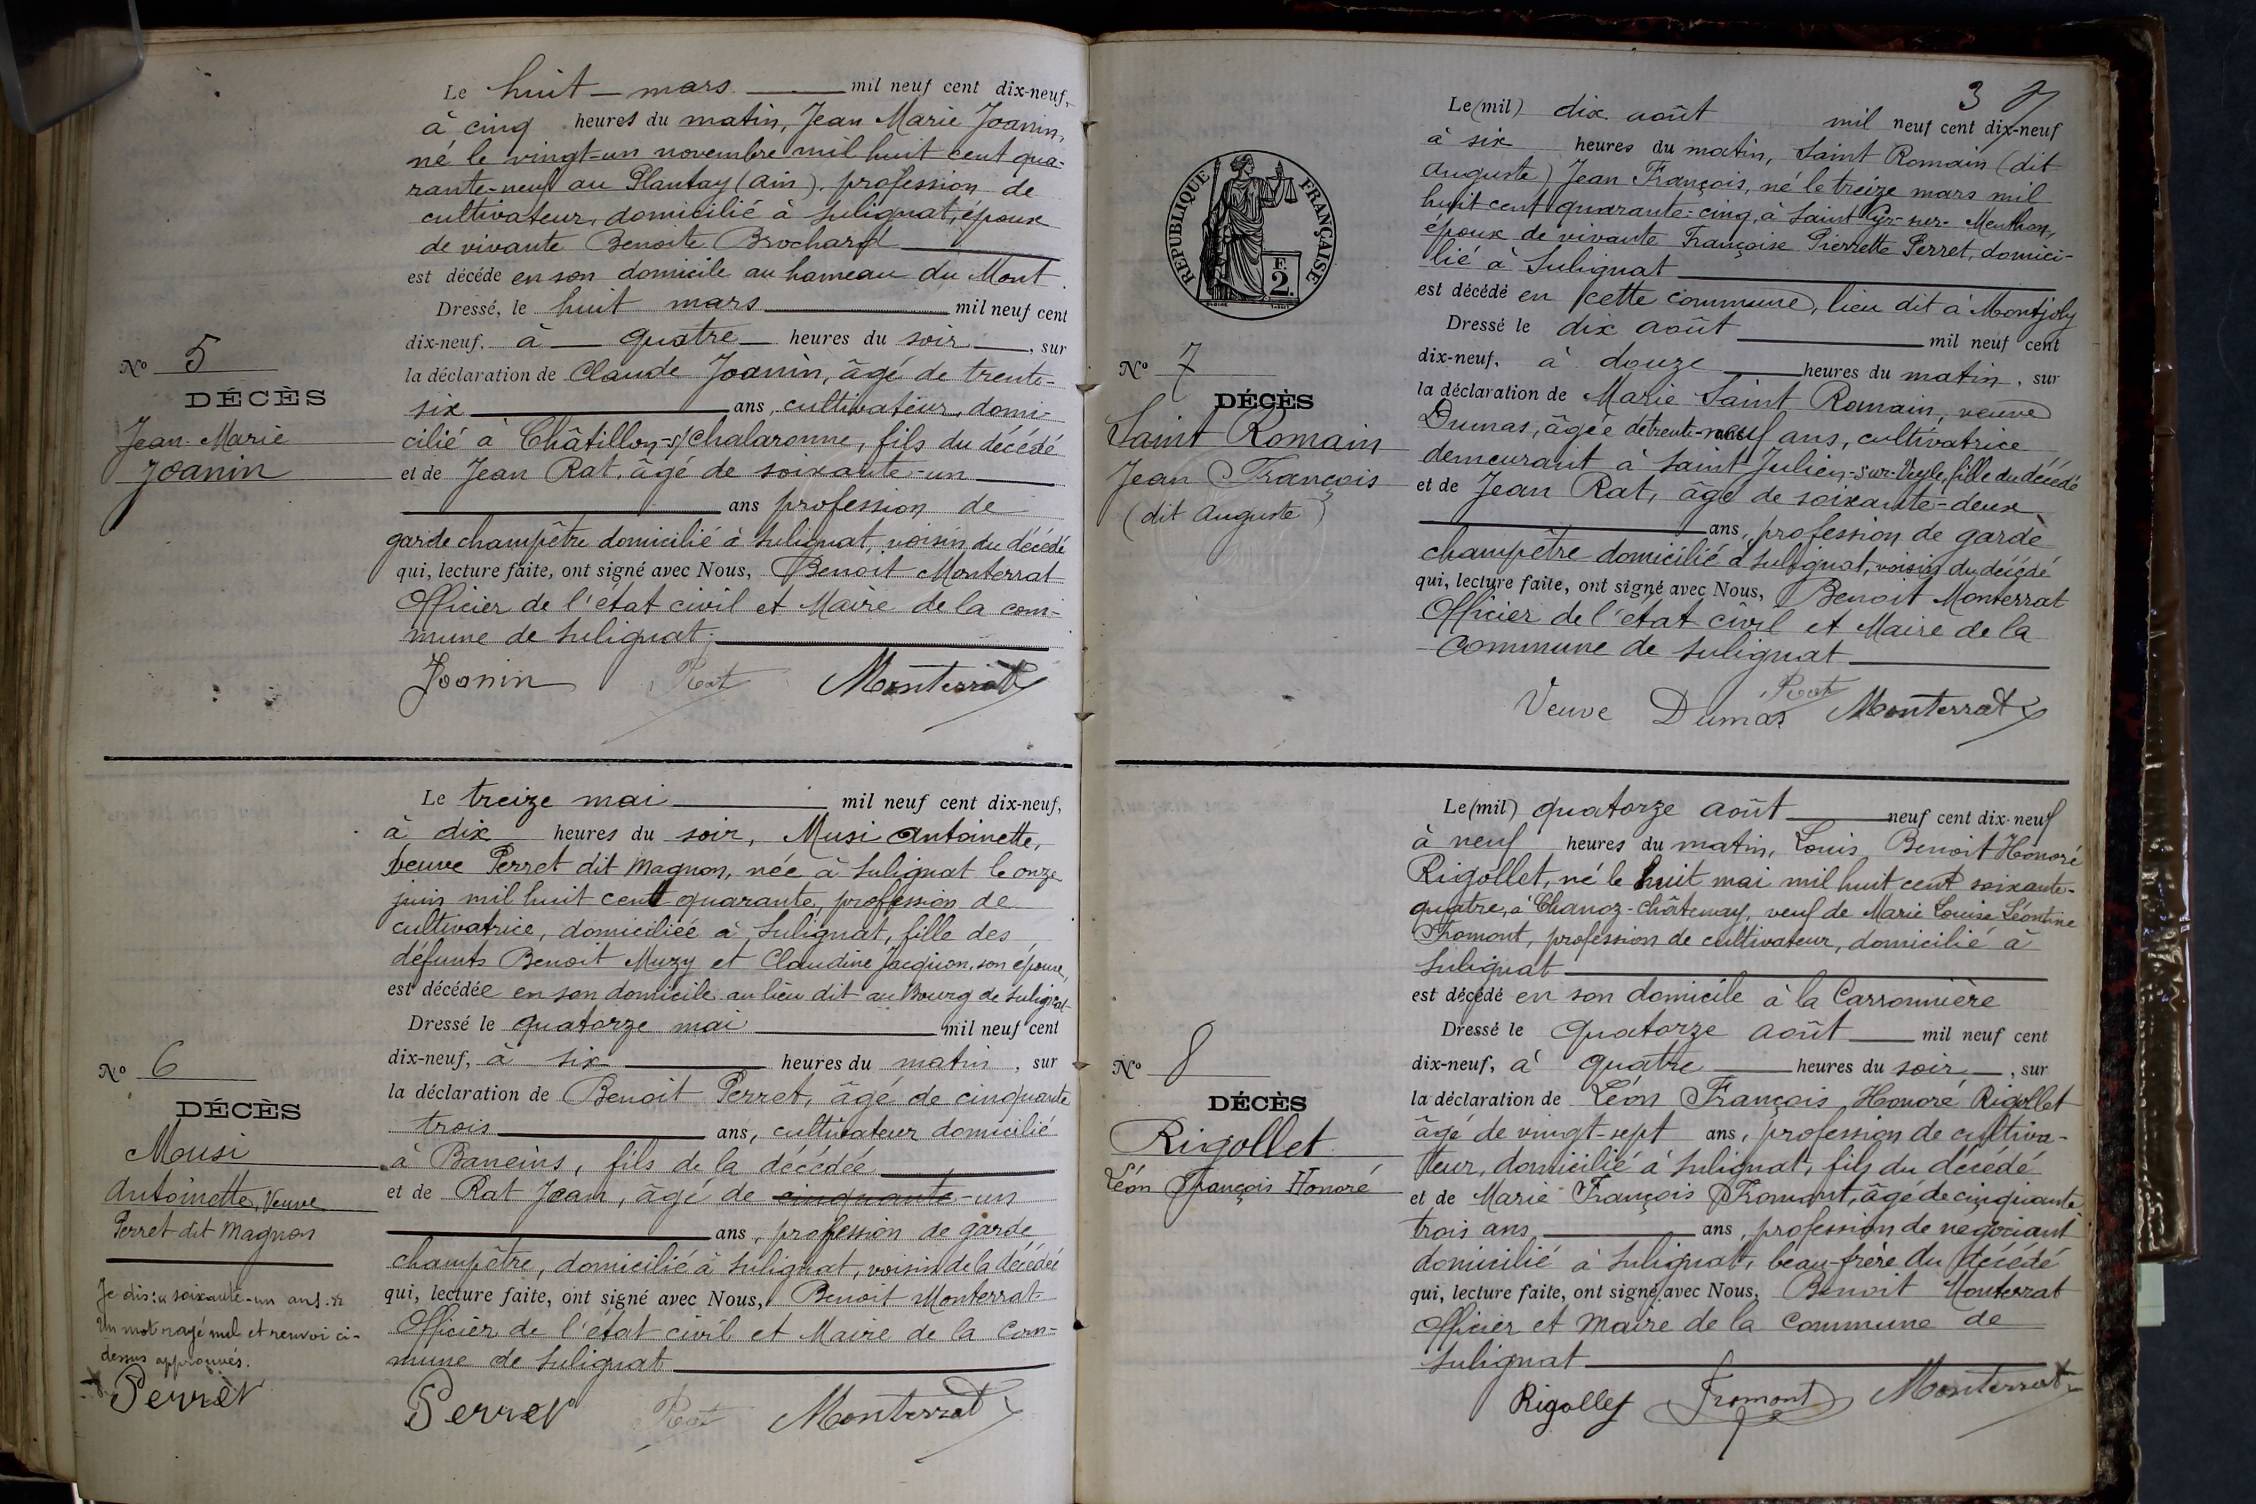 Le huit mars mil neuf cent dix-neuf,
à cinq heures du matin, Jean Marie Joanin,
né le vingt-un novembre mil huit cent qua-
rante-neuf au Plantay (Ain), profession de
cultivateur, domicilié à Sulignat, époux
de vivante Benoite Brochard
est décédé en son domicile au hameau du Mont.
Dressé, le huit mars mil neuf cent
dix-neuf, à quatre heures du soir, sur
la déclaration de Claude Joanin, âgé de trente-
six ans, cultivateur, domi-
cilié à Châtillon-s/Chalaronne, fils du décédé
et de Jean Rat, âgé de soixante-un
ans profession de
garde champêtre domicilié à Sulignat, voisin du décédé
qui, lecture faite, ont signé avec Nous, Benoit Monterrat
Officier de l'état civil et Maire de la com-
mune de Sulignat.
Joanin Rat Monterrat
No 5
DÉCÈS
Jean-Marie
Joanin
Le treize mai mil neuf cent dix-neuf,
à dix heures du soir, Musi Antoinette,
veuve Perret dit Magnon, née à Sulignat le onze
juin mil huit cent quarante, profession de
cultivatrice, domiciliée à Sulignat, fille des
défunts Benoit Muzy et Claudine Jacquon, son épouse,
est décédée en son domicile au lieu dit au Bourg de Sulignat
Dressé le quatorze mai mil neuf cent
dix-neuf, à six heures du matin, sur
la déclaration de Benoit Perret, âgé de cinquante
trois ans, cultivateur domicilié
à Baneins, fils de la décédée
et de Rat Jean, âgé de cinquante-un
ans, profession de garde
champêtre, domicilié à Sulignat, voisin de la décédée
qui, lecture faite, ont signé avec Nous, Benoit Monterrat
Officier de l'état civil et Maire de la Com-
mune de Sulignat
Perret Rat Monterrat
No 6
DÉCÈS
Mousi
Antoinette, Veuve
Perret dit Magnon
Je dis: « soixante-un ans. »
Un mot rayé nul et renvoi ci-
dessus approuvés.
Perret
3
Le (mil) dix août mil neuf cent dix-neuf
à six heures du matin, Saint Romain (dit
Auguste) Jean François, né le treize mars mil
huit cent quarante-cinq, à Saint Cyr-sur-Menthon,
époux de vivante Françoise Pierrette Perret, domici-
lié à Sulignat
est décédé en cette commune, lieu dit à Montjoly
Dressé le dix août mil neuf cent
dix-neuf, à douze heures du matin, sur
la déclaration de Marie Saint Romain, veuve
Dumas, âgée de trente-neuf ans, cultivatrice
demeurant à Saint Julien-sur-Veyle, fille du décédé
et de Jean Rat, âgé de soixante-deux
ans, profession de garde
champêtre domicilié à Sulignat, voisin du décédé
qui, lecture faite, ont signé avec Nous, Benoit Monterrat
Officier de l'état civil et Maire de la
Commune de Sulignat
Veuve Dumas Rat Monterrat
RÉPUBLIQUE FRANÇAISE
F.
2.
No 7
DÉCÈS
Saint Romain
Jean François
(dit Auguste)
Le (mil) quatorze août neuf cent dix-neuf
à neuf heures du matin, Louis Benoit Honoré
Rigollet, né le huit mai mil huit cent soixante-
quatre, à Chanoz-Châtenay, veuf de Marie Louise Léontine
Fromont, profession de cultivateur, domicilié à
Sulignat
est décédé en son domicile à la Carronnière
Dressé le quatorze août mil neuf cent
dix-neuf, à quatre heures du soir, sur
la déclaration de Léon François Honoré Rigollet
âgé de vingt-sept ans, profession de cultiva-
teur, domicilié à Sulignat, fils du décédé
et de Marie François Fromont, âgé de cinquante
trois ans ans, profession de négociant
domicilié à Sulignat, beau-frère du décédé
qui, lecture faite, ont signé avec Nous, Benoit Monterrat
Officier et Maire de la Commune de
Sulignat
Rigollet Fromont Monterrat
No 8
DÉCÈS
Rigollet
Léon François Honoré